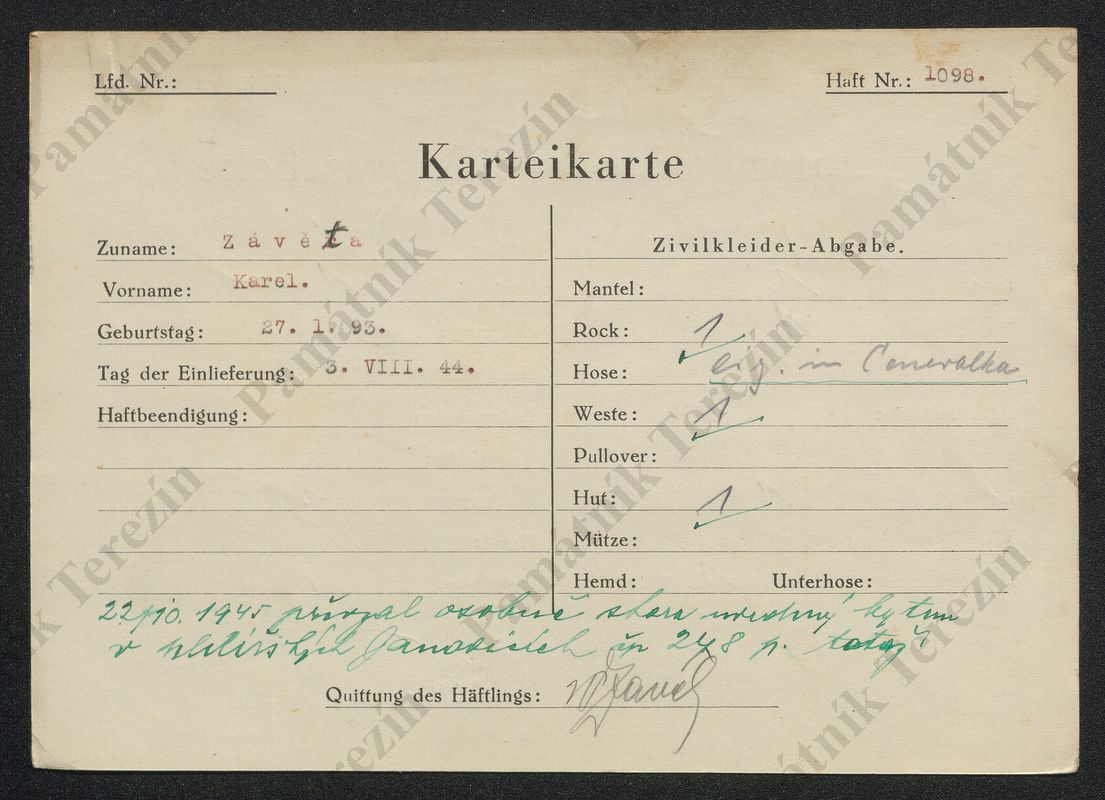 Lfd. Nr.:
Haft Nr.: 1098.
Karteikarte
Zuname: Závěta
Vorname: Karel.
Geburtstag: 27. 1. 93.
Tag der Einlieferung: 3. VIII. 44.
Haftbeendigung:
Zivilkleider-Abgabe.
Mantel:
Rock: 1
Hose: eig. in
Weste: 1
Pullover:
Hut: 1
Mütze:
Hemd: Unterhose:
22/10. 1945 převzal osobně shora uvedený bytem
v Janovicích čp 248 p. totéž
Quittung des Häftlings:
Památník Terezín